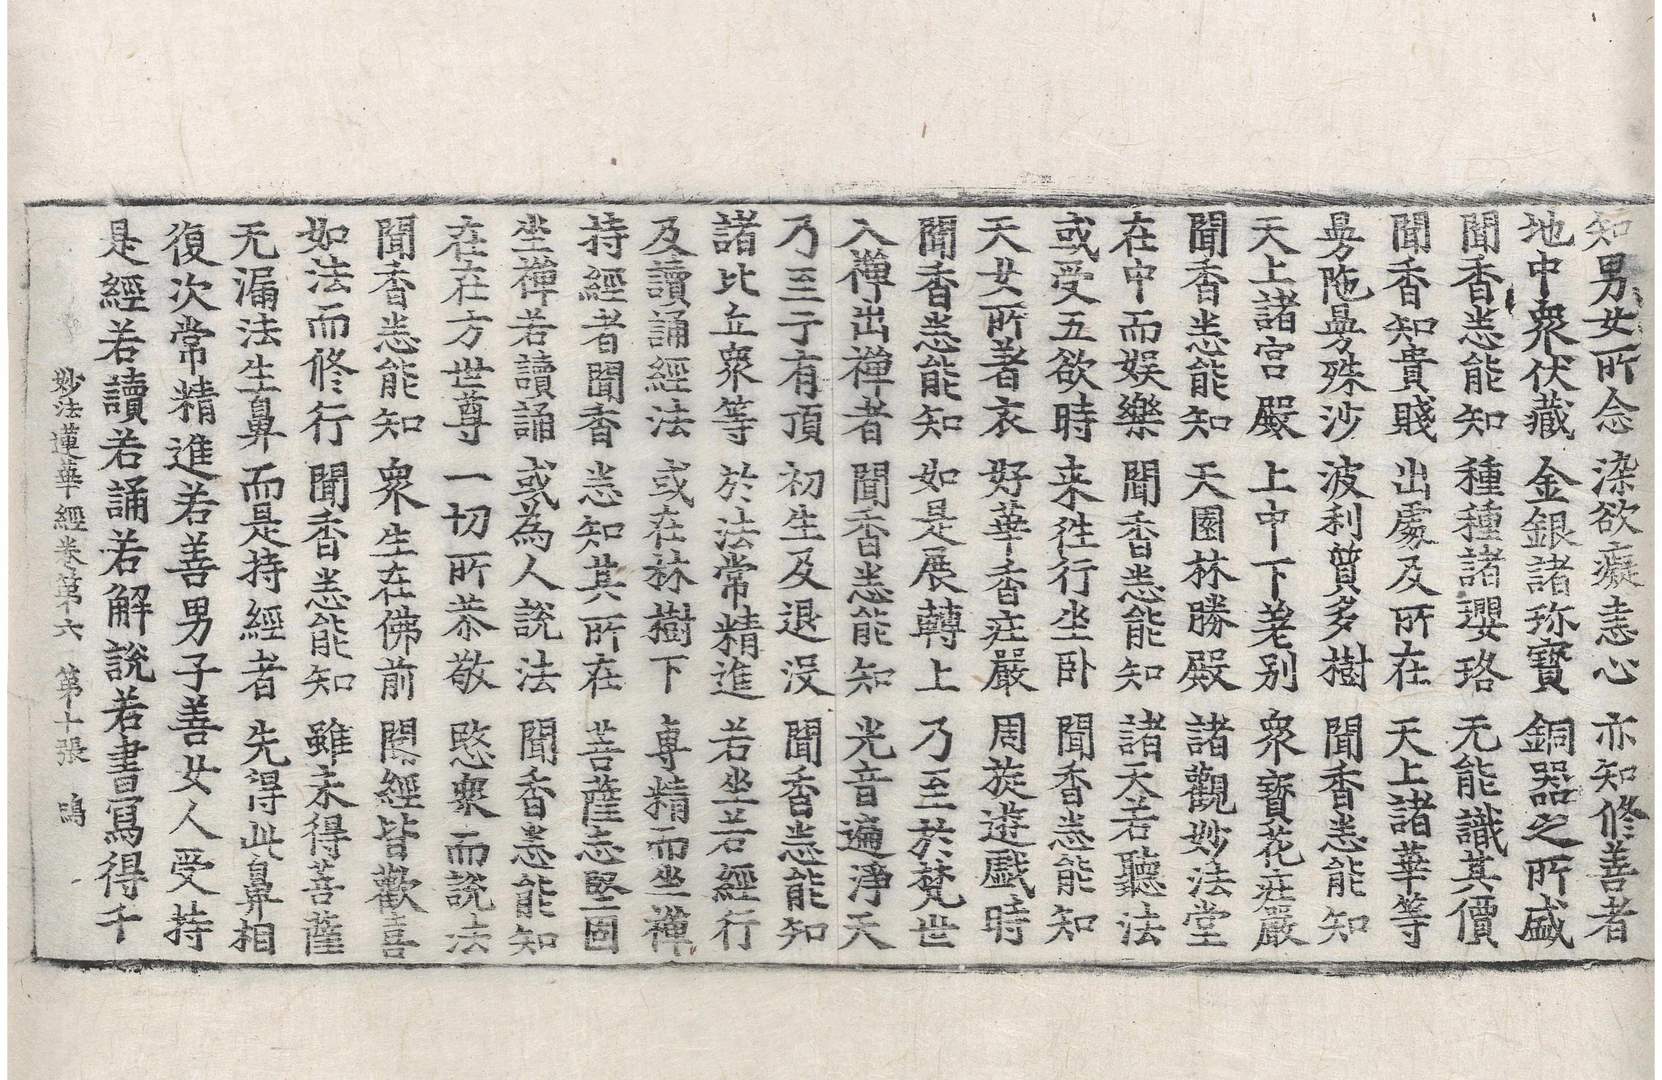 知男女所念 染欲癡恚心 亦知修善者
地中衆伏藏 金銀諸珎寶 銅器之所盛
聞香悉能知 種種諸瓔珞 无能識其價
聞香知貴賤 出處及所在 天上諸華等
曼陁曼殊沙 波利質多樹 聞香悉能知
天上諸宮殿 上中下差别 衆寶花莊嚴
聞香悉能知 天園林勝殿 諸觀妙法堂
在中而娛樂 聞香悉能知 諸天若聽法
或受五欲時 来往行坐卧 聞香悉能知
天女所著衣 好華香莊嚴 周旋遊戯時
聞香悉能知 如是展轉上 乃至於梵世
入禪出禪者 聞香悉能知 光音遍淨天
乃至于有頂 初生及退没 聞香悉能知
諸比丘衆等 於法常精進 若坐若經行
及讀誦經法 或在林樹下 專精而坐禪
持經者聞香 悉知其所在 菩薩志堅固
坐禪若讀誦 或為人說法 聞香悉能知
在在方世尊 一切所恭敬 愍衆而說法
聞香悉能知 衆生在佛前 聞經皆歡喜
如法而修行 聞香悉能知 雖未得菩薩
无漏法生鼻 而是持經者 先得此鼻相
復次常精進若善男子善女人受持
是經若讀若誦若解說若書寫得千
妙法蓮華經卷第六 第十張 鳴